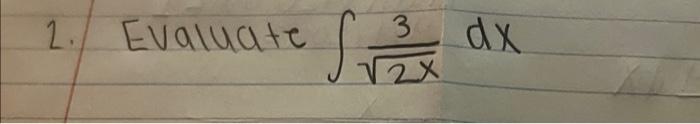 2. Evaluate ∫ 3/√2x dx